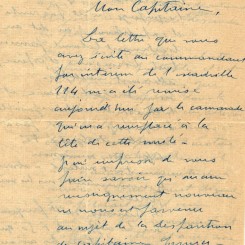 Mon Capitaine,
La lettre que vous
avez écrite au commandant
par interim de l'escadrille
114 m'a été remise
aujourd'hui par le camarade
qui m'a remplacé à la
tête de cette unité -
J'ai
faire savoir qu'aucun
renseignement nouveau
ne nous est parvenu
au sujet de la disparition
du capitaine